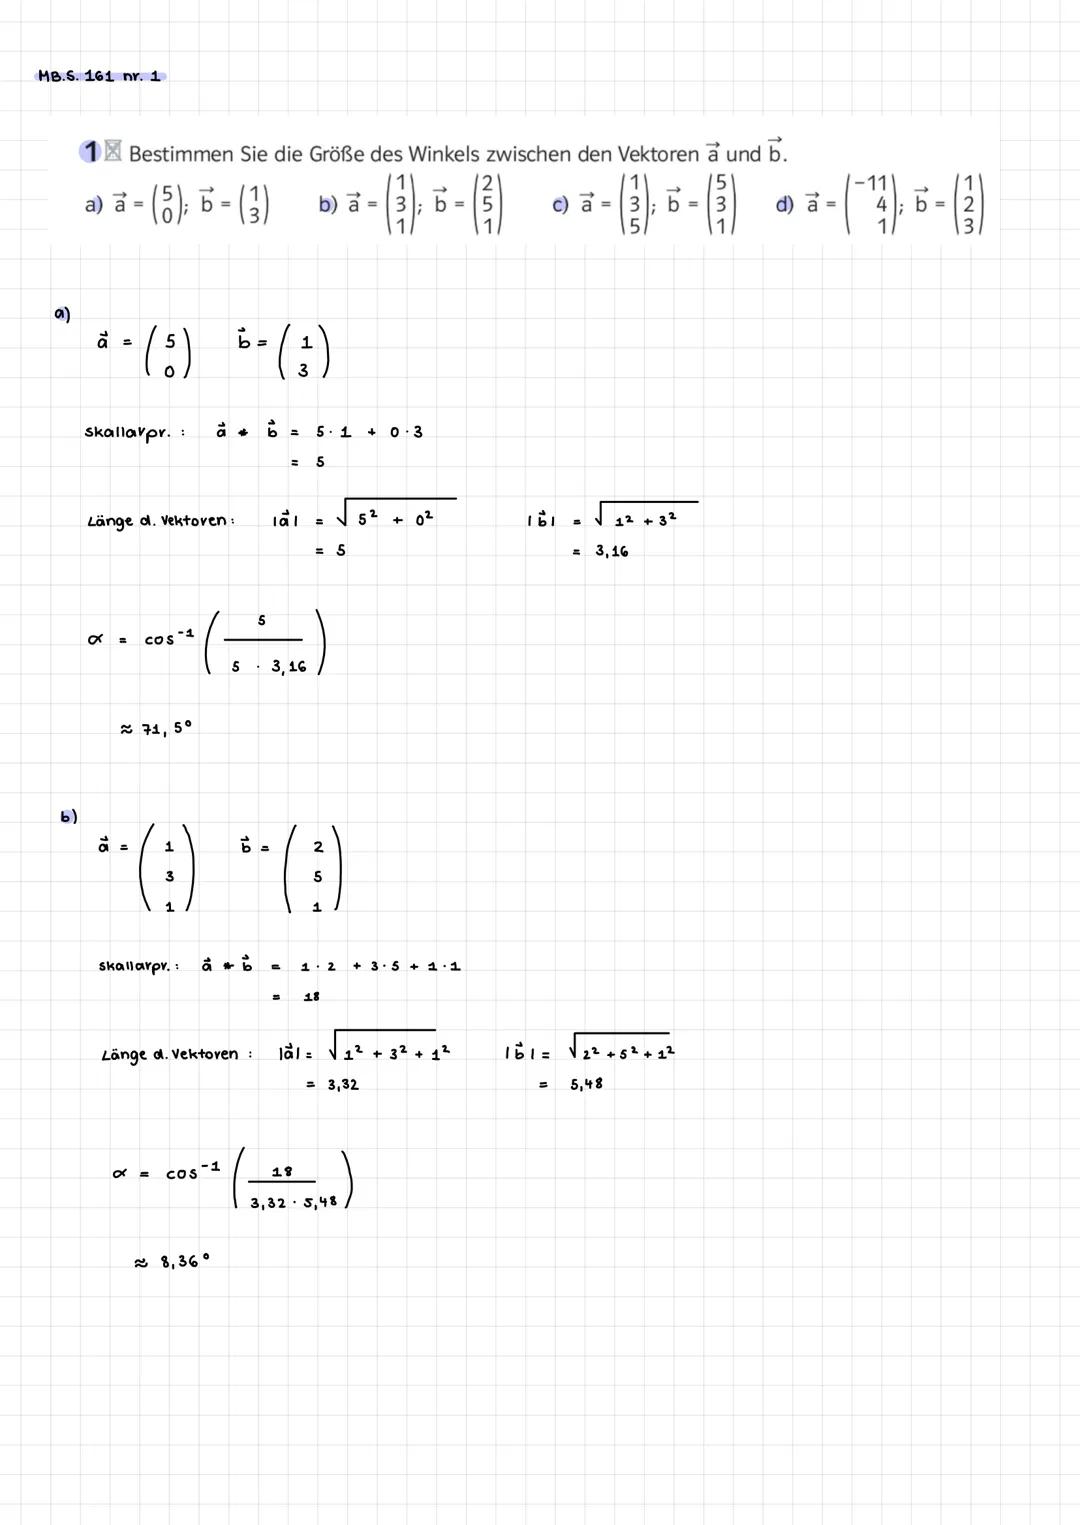 MB.S. 161 nr. 1
1 Bestimmen Sie die Größe des Winkels zwischen den Vektoren a⃗ und b⃗.
a) a⃗ = (5 0); b⃗ = (1 3) b) a⃗ = (1 3 1); b⃗ = (2 5 1) c) a⃗ = (1 3 5); b⃗ = (5 3 1) d) a⃗ = (-11 4 1); b⃗ = (1 2 3)
a)
a⃗ = (5 0) b⃗ = (1 3)
skallarpr. : a⃗ * b⃗ = 5·1 + 0·3
= 5
Länge d. Vektoren: |a⃗| = √5² + 0² |b⃗| = √1² + 3²
= 5 = 3,16
α = cos⁻¹ (5 / 5 · 3,16)
≈ 71,5°
b)
a⃗ = (1 3 1) b⃗ = (2 5 1)
skallarpr. : a⃗ * b⃗ = 1·2 + 3·5 + 1·1
= 18
Länge d. Vektoren : |a⃗| = √1² + 3² + 1² |b⃗| = √2² + 5² + 1²
= 3,32 = 5,48
α = cos⁻¹ (18 / 3,32 · 5,48)
≈ 8,36°